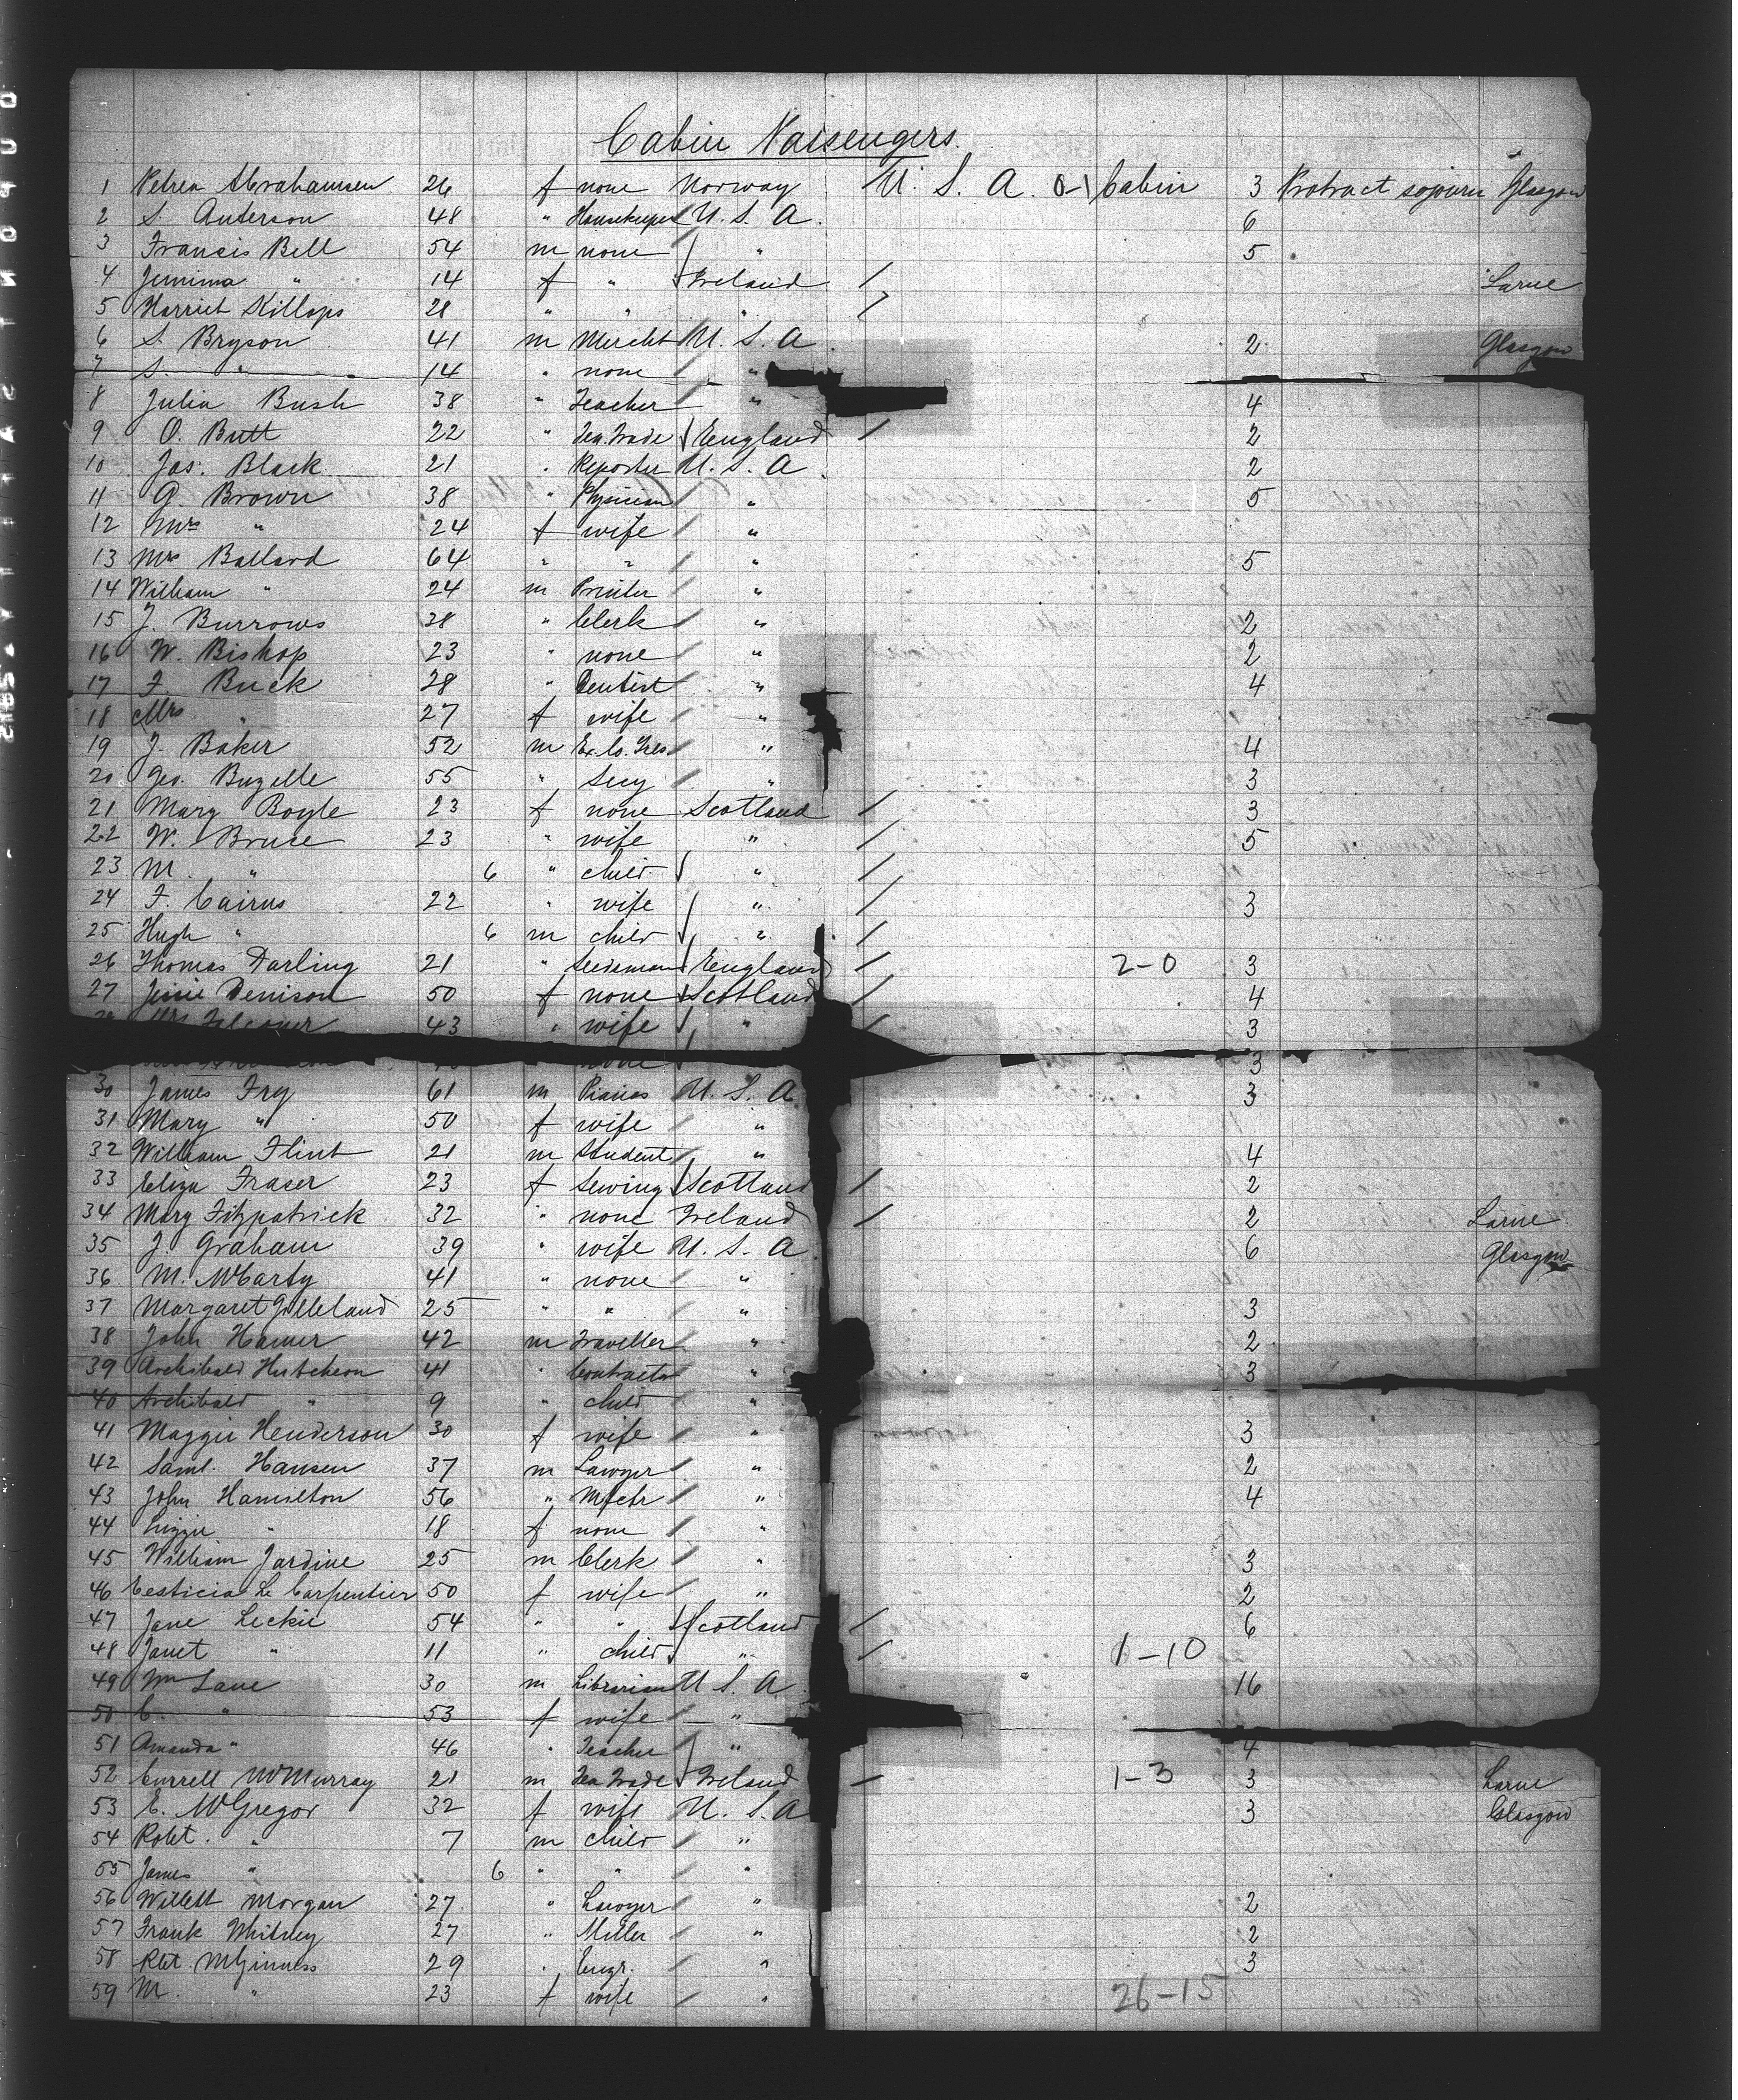 Cabin Passengers.
1 Petrea Abrahamsen 26 f none Norway U. S. A. 0-1 Cabin 3 Protract sojourn Glasgow
2 S. Anterson 48 " Housekeeper U. S. A. 6
3 Francis Bell 54 m none " 5
4 Jemima " 14 f " Ireland / Larne
5 Harriet Killops 28 " " " /
6 S. Bryson 41 m Mercht U. S. A. 2 Glasgow
7 S. " 14 " none "
8 Julia Bush 38 " Teacher " 4
9 O. Butt 22 " Tea Trade England / 2
10 Jas. Black 21 " Reporter U. S. A. 2
11 G. Brown 38 " Physician " 5
12 Mrs " 24 f wife "
13 Mrs Ballard 64 " " " 5
14 William " 24 m Printer "
15 J. Burrows 38 " Clerk " 2
16 W. Bishop 23 " none " 2
17 F. Buck 28 " Dentist " 4
18 Mrs " 27 f wife "
19 J. Baker 52 m Ex. Co. Tres " 4
20 Geo. Buzelle 55 " Secy " 3
21 Mary Boyle 23 f none Scotland / 3
22 W. Bruce 23 " wife " / 5
23 M. " 6 " child " /
24 F. Cairns 22 " wife " / 3
25 Hugh " 6 m child " /
26 Thomas Darling 21 " Seedsman England / 2-0 3
27 Jessie Denison 50 f none Scotland / 4
Mrs Falconer 43 " wife " / 3
none 3
30 James Fry 61 m Pianos U. S. A. 3
31 Mary " 50 f wife "
32 William Flint 21 m Student " 4
33 Eliza Fraser 23 f Sewing Scotland / 2
34 Mary Fitzpatrick 32 " none Ireland / 2 Larne
35 J. Graham 39 " wife U. S. A. 6 Glasgow
36 M. McCarty 41 " none "
37 Margaret Gilleland 25 " " " 3
38 John Hamer 42 m Traveller " 2
39 Archibald Hutcheon 41 " Contractor " 3
40 Archibald " 9 " child "
41 Maggie Henderson 30 f wife " 3
42 Saml. Hansen 37 m Lawyer " 2
43 John Hamilton 56 " Mfctr " 4
44 Lizzie " 18 f none "
45 William Jardine 25 m Clerk " 3
46 Le Carpentier 50 f wife " 2
47 Jane Leckie 54 " " Scotland / 6
48 Janet " 11 " child " / 1-10
49 Wm Lane 30 m Librarian U. S. A. 16
50 C. " 53 f wife "
51 Amanda " 46 " Teacher " 4
52 Currell McMurray 21 m Tea Trade Ireland / 1-3 3 Larne
53 E. McGregor 32 f wife U. S. A. 3 Glasgow
54 Robt. " 7 m child "
55 James " 6 " " "
56 Willett Morgan 27 " Lawyer " 2
57 Frank Whitney 27 " Miller " 2
58 Rbt. McGinness 29 " Engr. " 3
59 M. " 23 f wife " 26-15